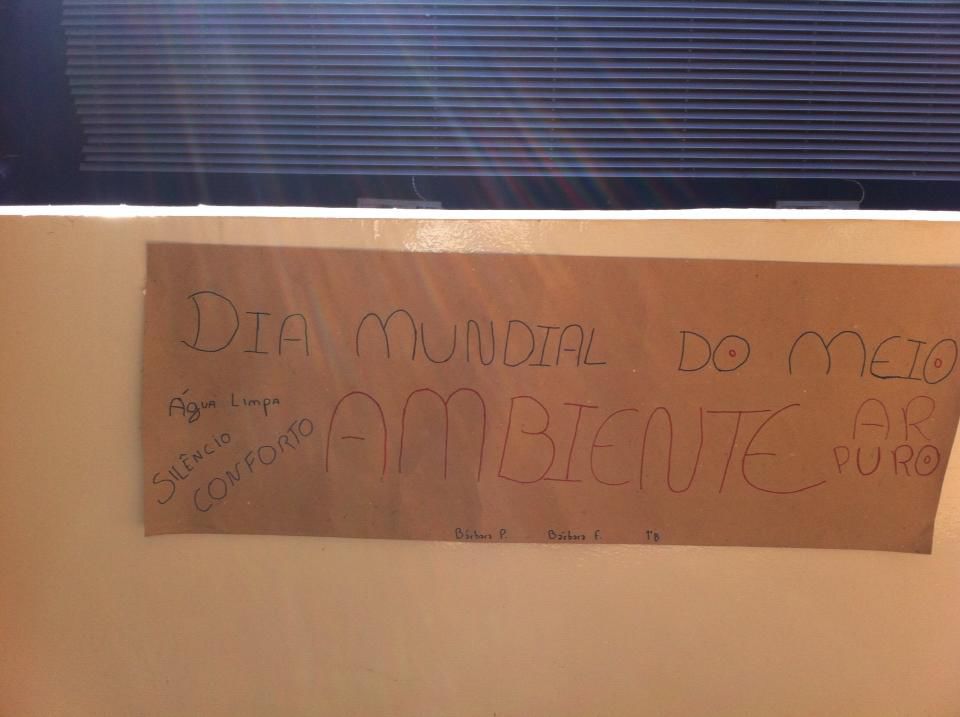 DIA MUNDIAL DO MEIO
AMBIENTE
Água Limpa
SILÊNCIO
CONFORTO
AR
PURO
Bárbara P. Bárbara F. 1ºB